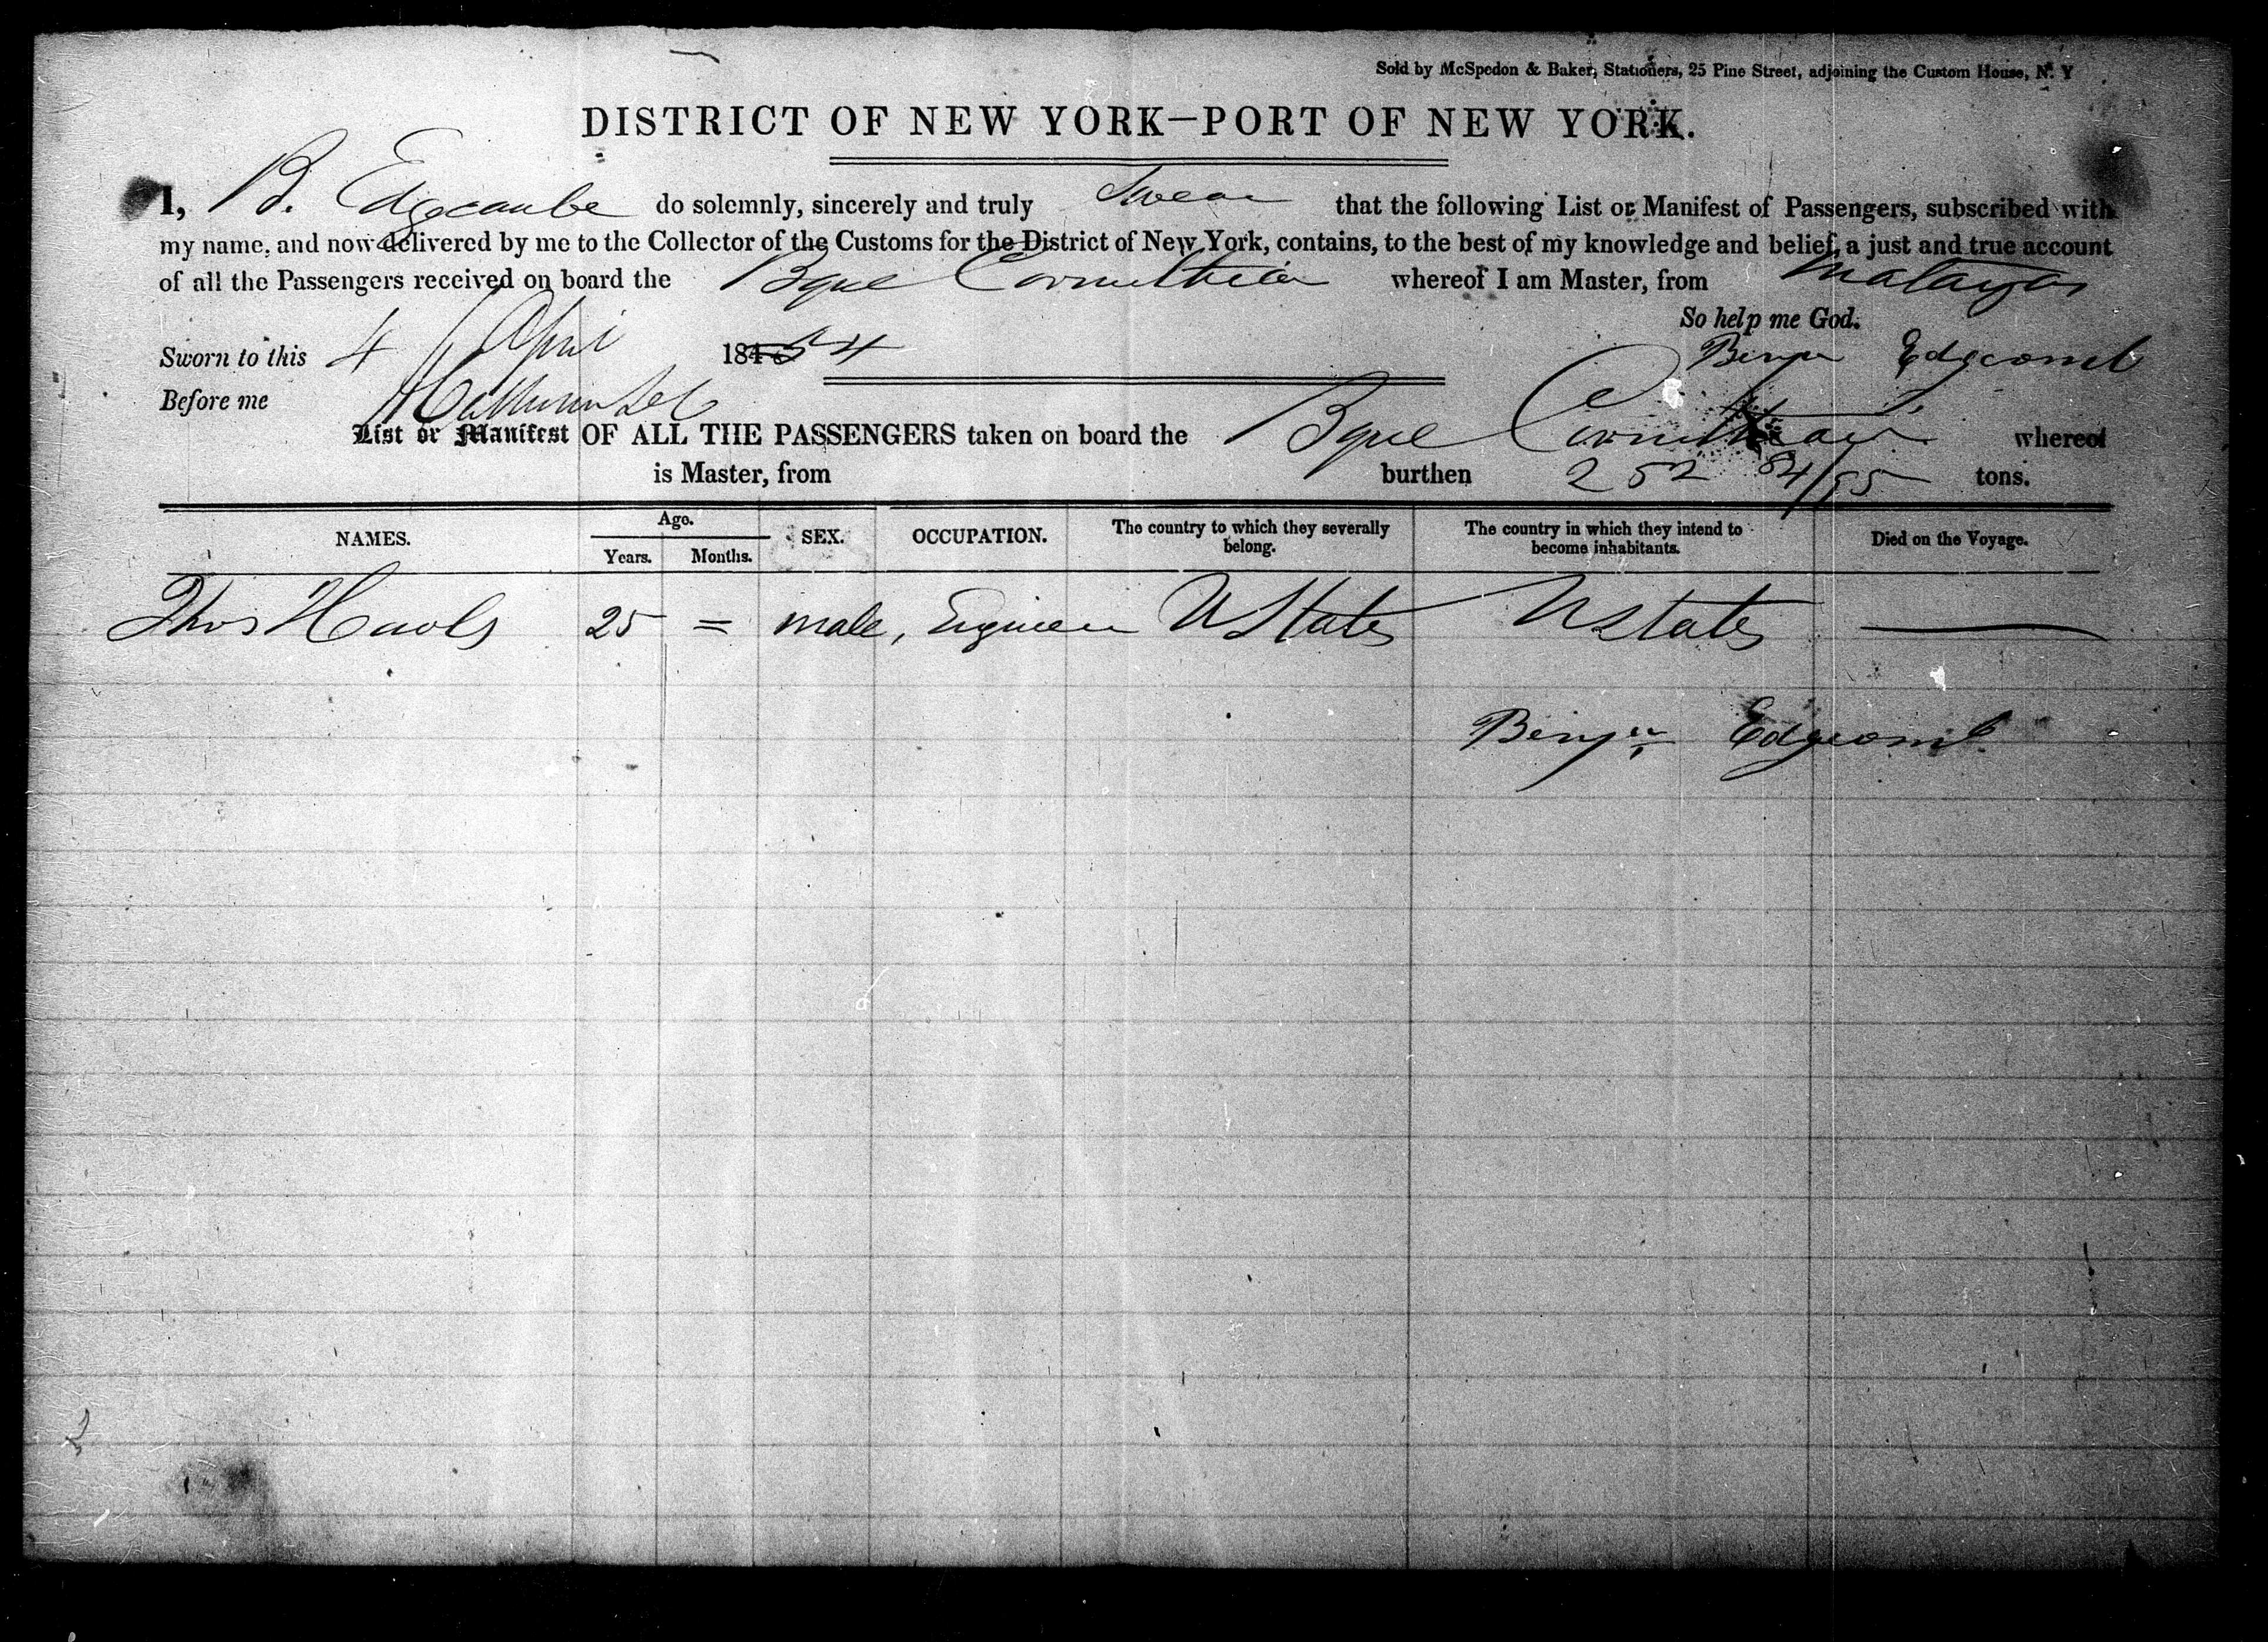 Sold by McSpedon & Baker, Stationers, 25 Pine Street, adjoining the Custom House, N. Y
DISTRICT OF NEW YORK—PORT OF NEW YORK.
I, B. Edgecumbe do solemnly, sincerely and truly Swear that the following List or Manifest of Passengers, subscribed with
my name, and now delivered by me to the Collector of the Customs for the District of New York, contains, to the best of my knowledge and belief, a just and true account
of all the Passengers received on board the Bque Corinthian whereof I am Master, from Malaga
So help me God.
Sworn to this 4 April 1854 Benjn Edgcomb
Before me
List or Manifest OF ALL THE PASSENGERS taken on board the Bque Corinthian whereof
is Master, from burthen 252 84/95 tons.
NAMES. Age. Years. Months. SEX. OCCUPATION. The country to which they severally belong. The country in which they intend to become inhabitants. Died on the Voyage.
Thos 25 = male, Engineer U States U States —
Benjn Edgcomb